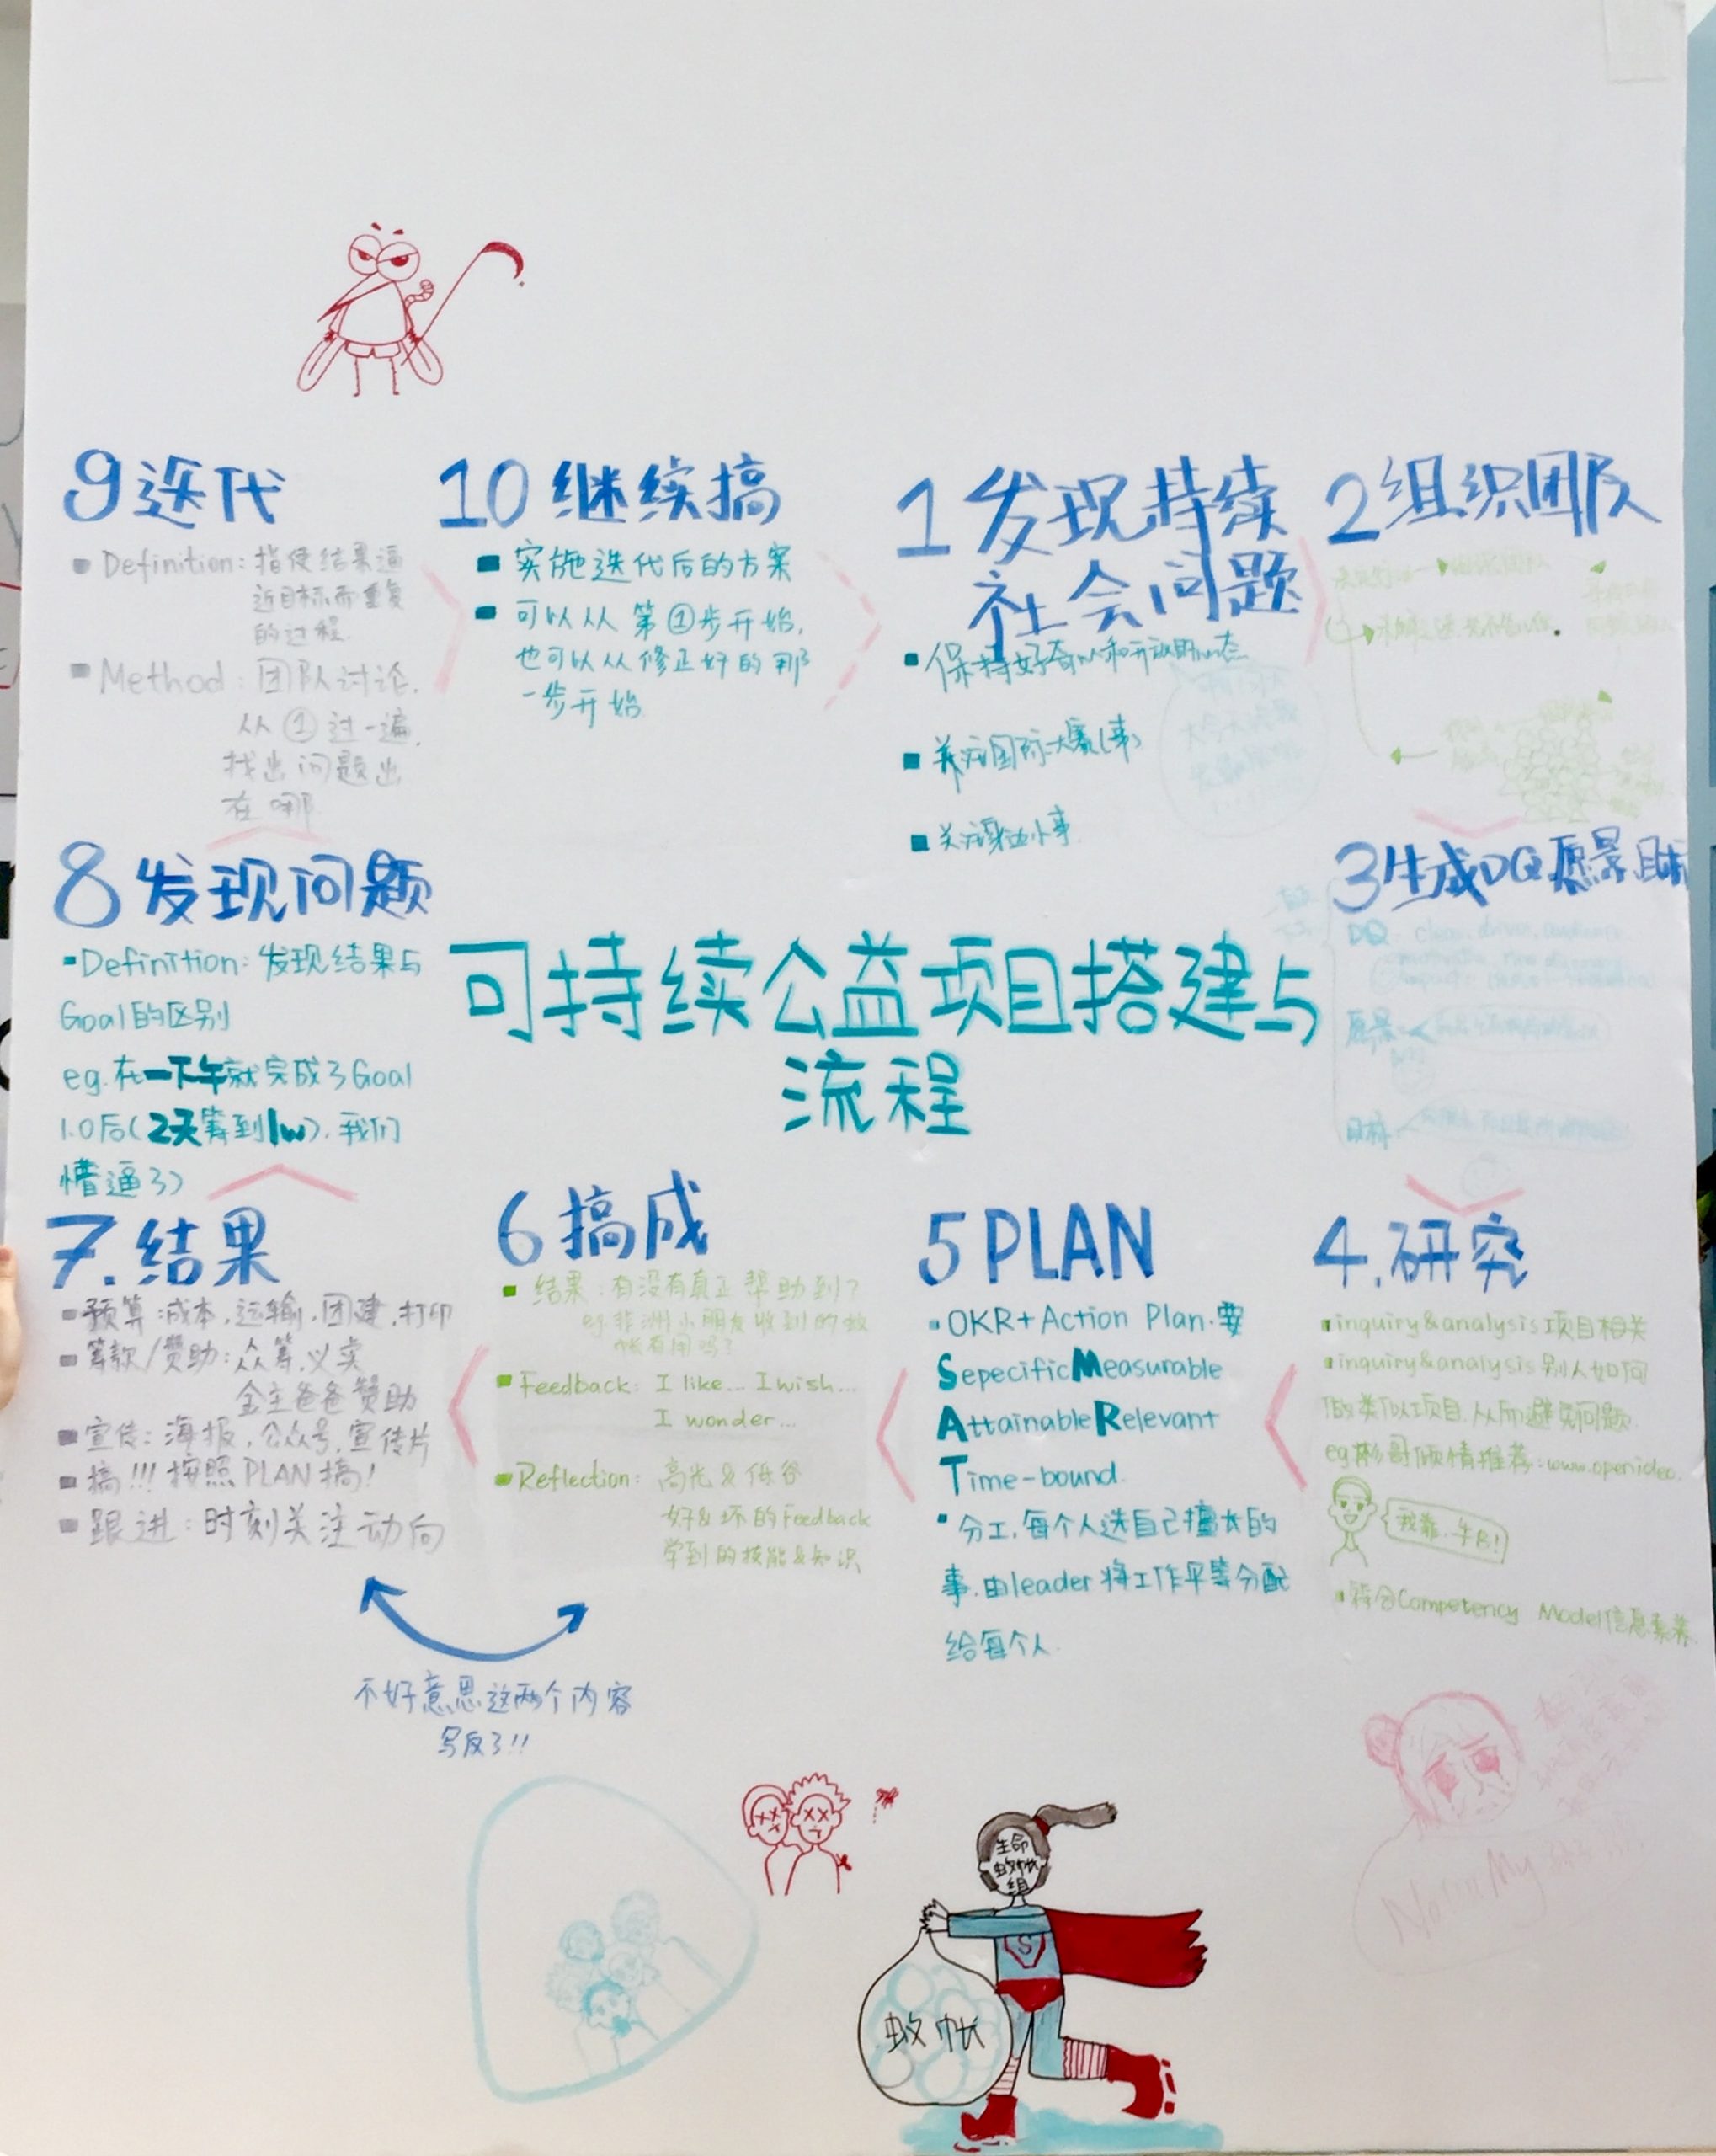 可持续公益项目搭建与
流程
1 发现持续
社会问题
▪ 保持好奇心和开放的心态
▪ 关注国际大赛(事)
▪ 关注身边小事
2 组织团队
3 生成DQ.愿景.目标
DQ
愿景
目标
4.研究
▪ inquiry&analysis 项目相关
▪ inquiry&analysis 别人如何
做类似项目,从而避免问题
eg.彬哥倾情推荐:www.openideo.
我靠,牛B!
▪ 符合Competency Model信息素养
5 PLAN
▪ OKR+Action Plan.要
Sepecific Measurable
Attainable Relevant
Time-bound.
▪ 分工,每个人选自己擅长的
事.由leader将工作平等分配
给每个人.
6 搞成
▪ 结果:有没有真正帮助到?
eg.非洲小朋友收到的蚊
帐有用吗?
▪ Feedback: I like... I wish...
I wonder...
▪ Reflection: 高光&低谷
好&坏的Feedback
学到的技能&知识
7.结果
▪ 预算:成本,运输,团建,打印
▪ 筹款/赞助:众筹,义卖
金主爸爸赞助
▪ 宣传:海报,公众号,宣传片
▪ 搞!!! 按照PLAN搞!
▪ 跟进:时刻关注动向
不好意思这两个内容
写反了!!
8 发现问题
▪ Definition: 发现结果与
Goal的区别
eg.在一下午就完成了Goal
1.0后(2天筹到1w),我们
懵逼了)
9 迭代
▪ Definition: 指使结果逼
近目标而重复
的过程.
▪ Method: 团队讨论,
从①过一遍,
找出问题出
在哪
10 继续搞
▪ 实施迭代后的方案
▪ 可以从第①步开始,
也可以从修正好的那
一步开始
生命
蚊帐
组
S
蚊帐
No My